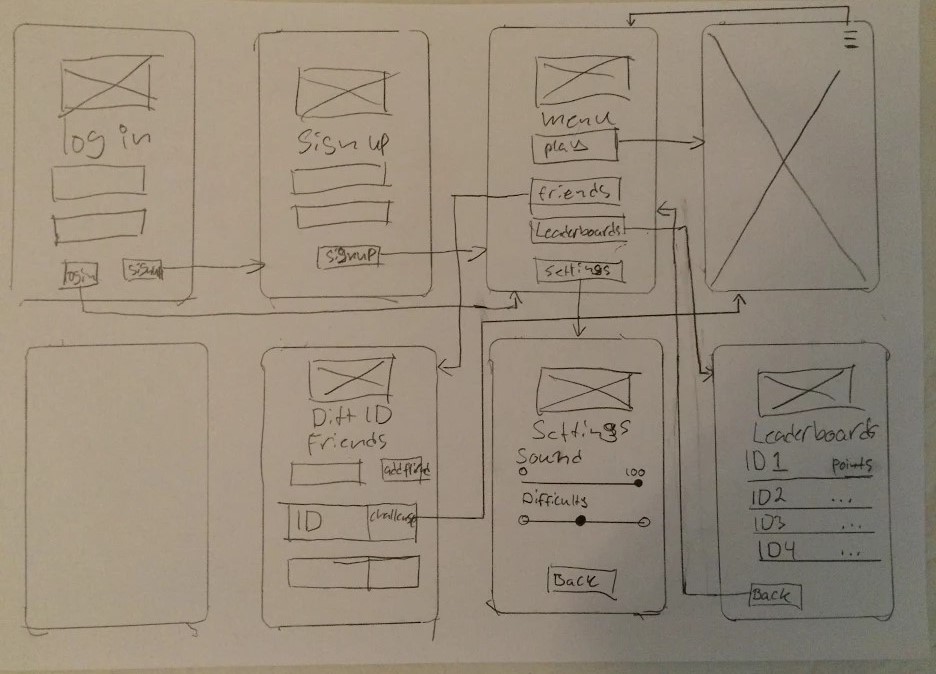 log in
login
signup
Sign up
signup
menu
play
friends
Leaderboards
settings
Ditt ID
Friends
add friend
ID
challenge
Settings
Sound
0
100
Difficulty
Back
Leaderboards
ID 1 points
ID2 ...
ID3 ...
ID4 ...
Back